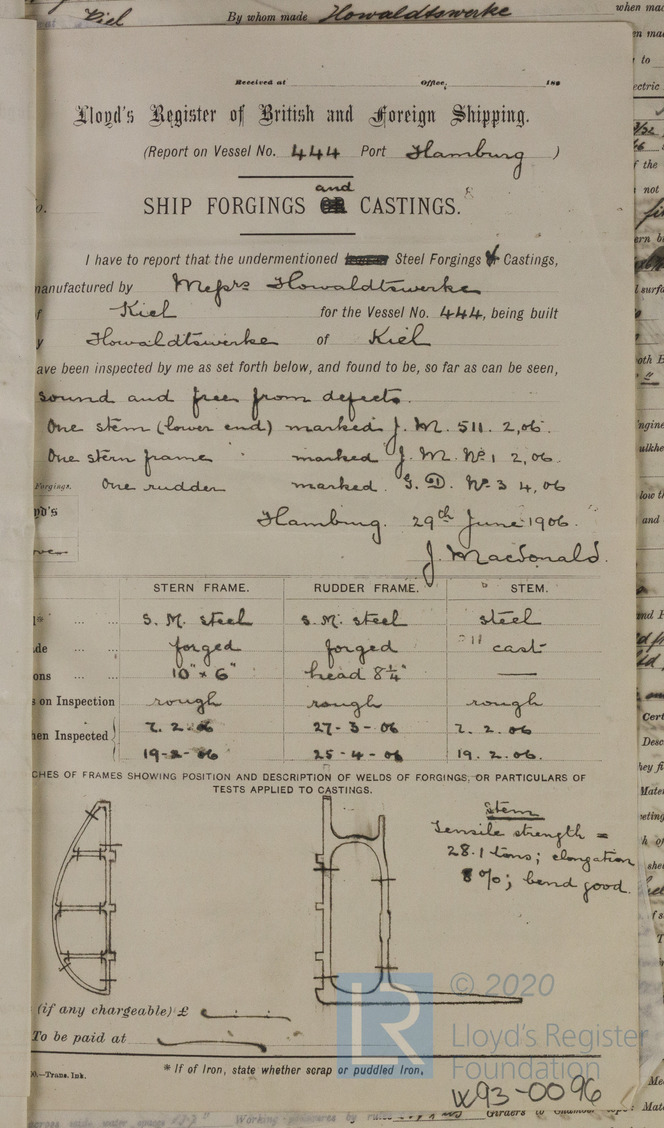 Kiel By whom made Howaldtswerke
Received at Office, 18
Lloyd's Register of British and Foreign Shipping.
(Report on Vessel No. 444 Port Hamburg )
and
SHIP FORGINGS OR CASTINGS.
I have to report that the undermentioned Steel Forgings & Castings,
manufactured by Messrs Howaldtswerke
f Kiel for the Vessel No. 444, being built
y Howaldtswerke of Kiel
ave been inspected by me as set forth below, and found to be, so far as can be seen,
sound and free from defects.
One stem (lower end) marked J. M. 511. 2,06.
One stern frame marked J. M. No 1 2,06.
Forgings. One rudder marked G. D. No 3 4,06
yd's
Hamburg. 29th June 1906.
J. Macdonald.
STERN FRAME. RUDDER FRAME. STEM.
S. M. steel S. M. steel steel
de forged forged cast
ons 10" x 6" head 8 1/4" —
s on Inspection rough rough rough
hen Inspected 7. 2. 06 27-3-06 7. 2. 06
19-2-06 25-4-06 19. 2. 06.
CHES OF FRAMES SHOWING POSITION AND DESCRIPTION OF WELDS OF FORGINGS, OR PARTICULARS OF
TESTS APPLIED TO CASTINGS.
Stem
Tensile strength =
28.1 tons; elongation
8 %; bend good.
(if any chargeable) £
To be paid at
© 2020
LR Lloyd's Register
Foundation
* If of Iron, state whether scrap or puddled Iron,
0.—Trans. Ink.
W93-0096